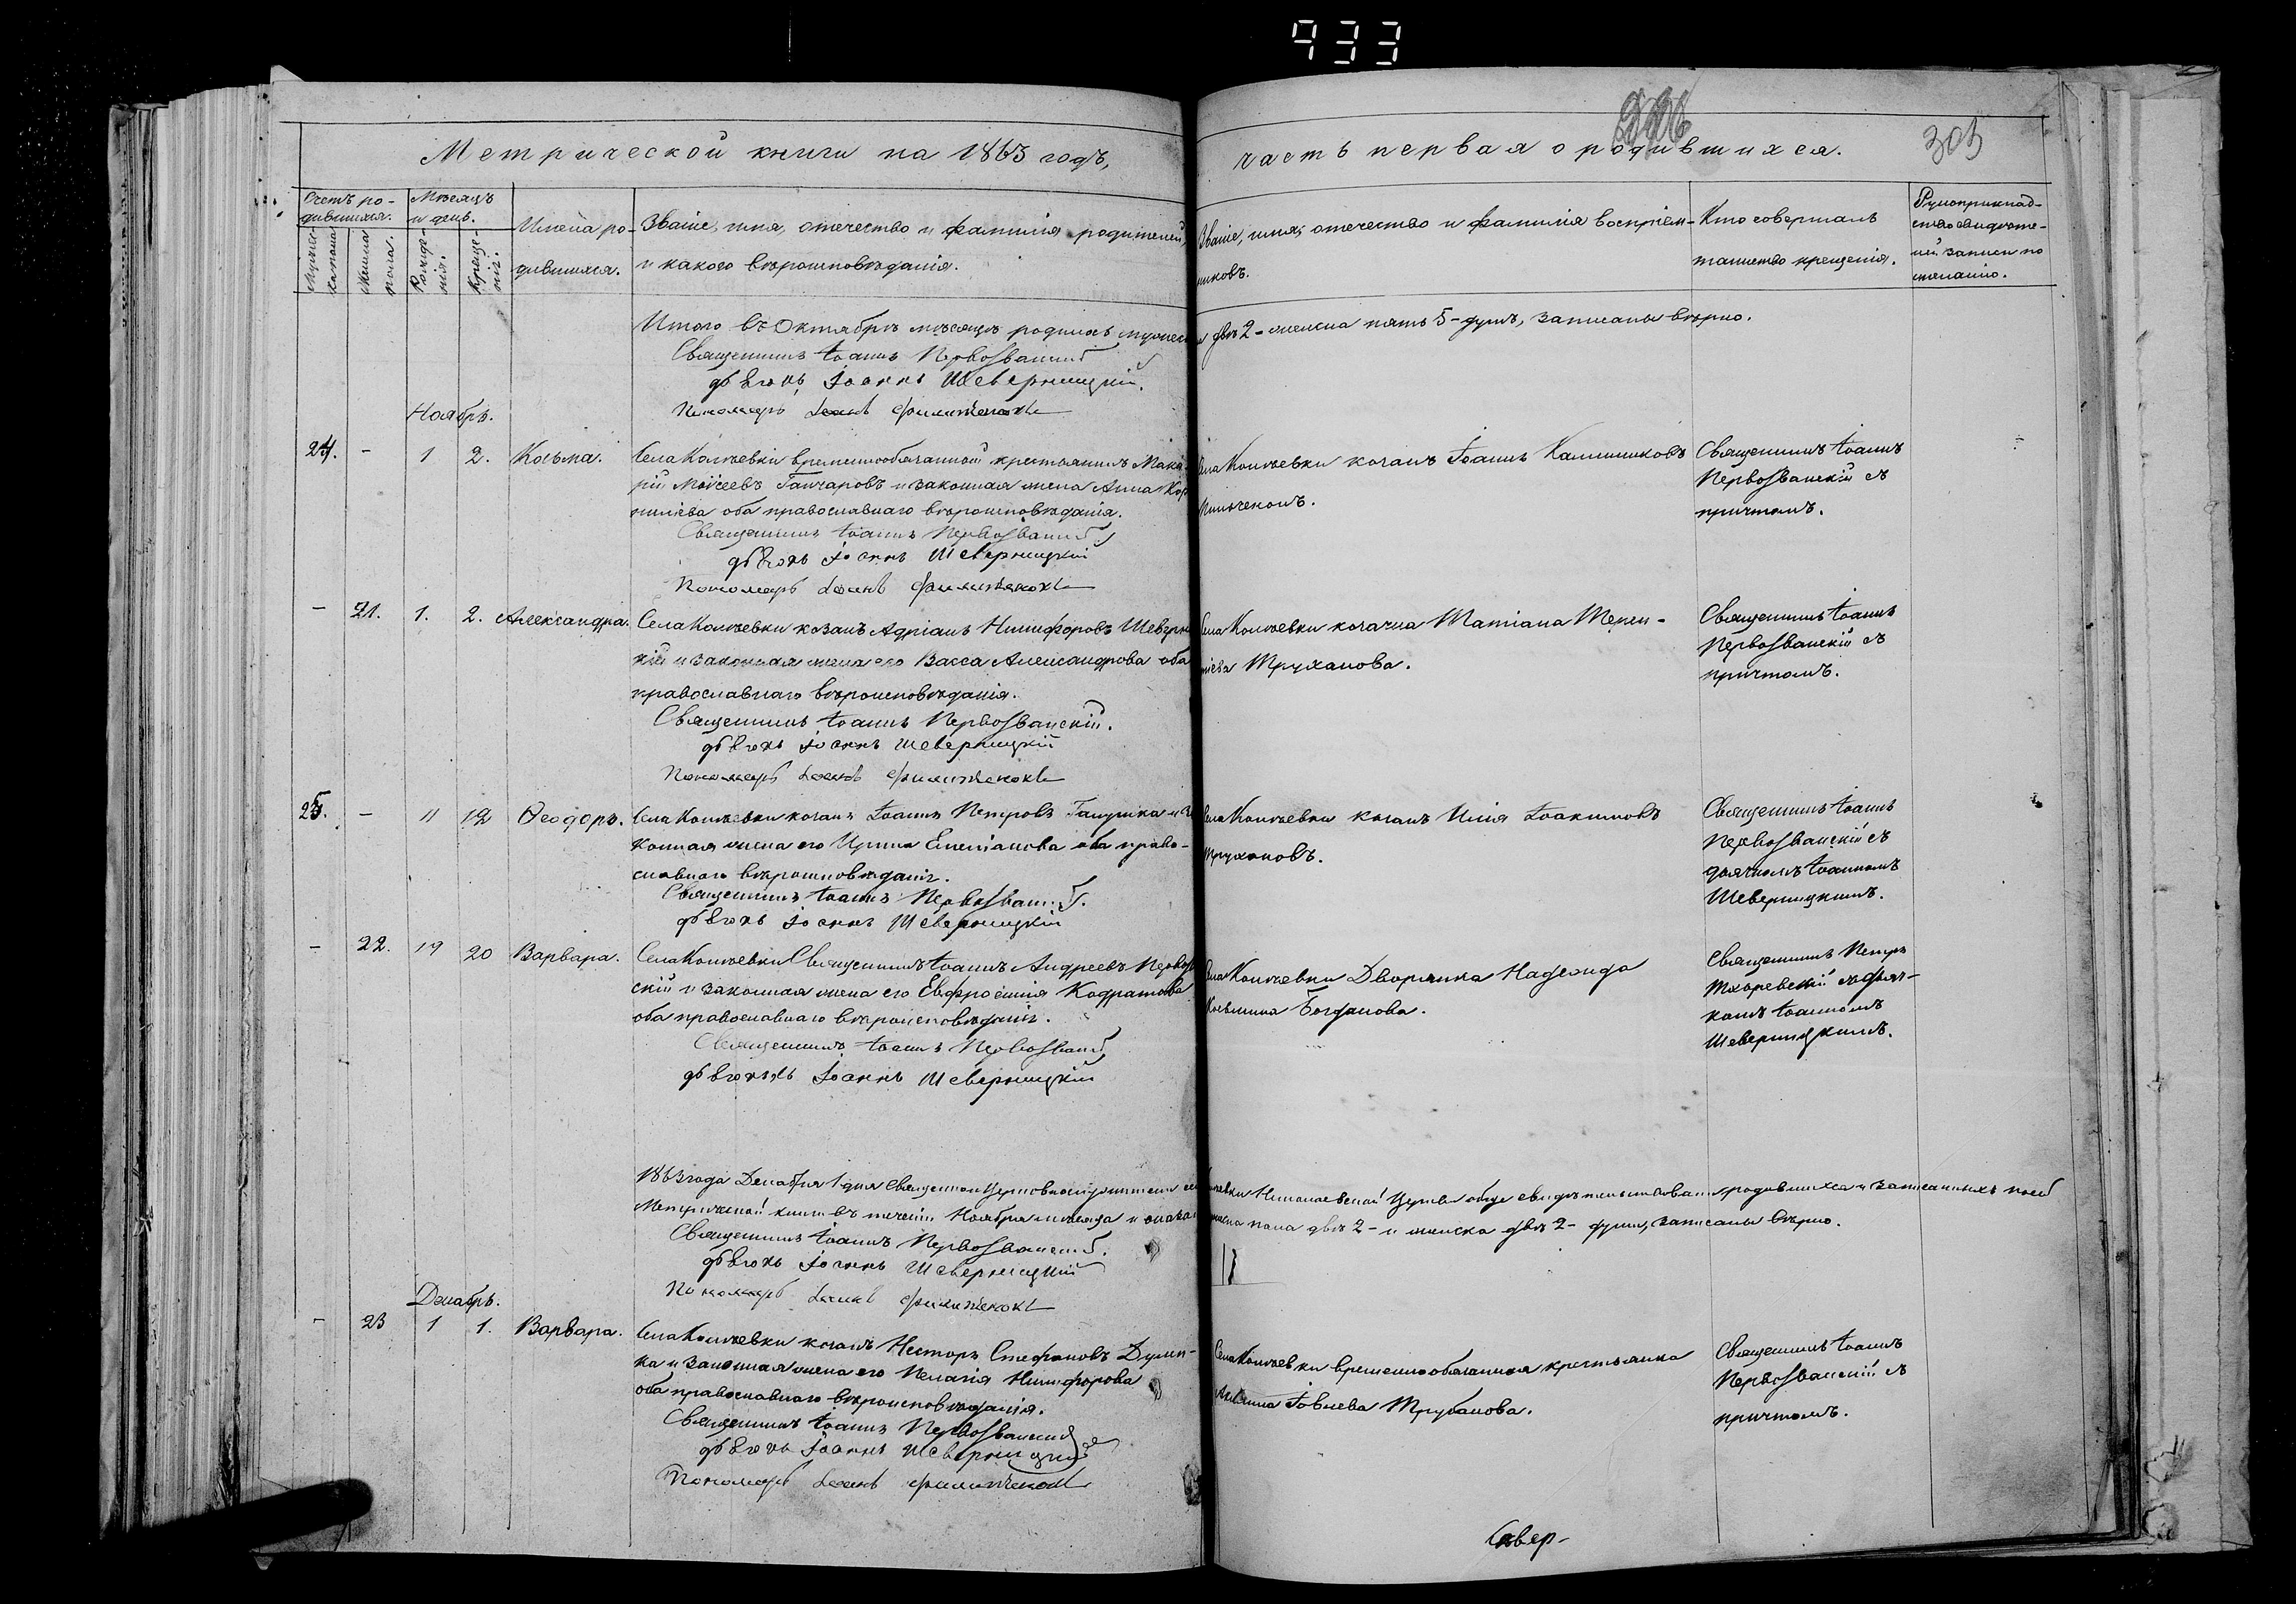 933
Метрической книги на 1863 годъ,
часть первая о родившихся.
305
Счетъ ро-
дившихся.
Мужес-
каго пола
Женска
пола.
Мѣсяцъ
и день.
Рожде-
нія.
Креще-
нія.
Имена ро-
дившихся.
Званіе, имя, отечество и фамилія родителей,
и какого вѣроисповѣданія.
Званіе, имя, отечество и фамилія воспріем-
никовъ.
Кто совершалъ
таинство крещенія.
Рукоприклад-
ство свидѣте-
лей записи по
желанію.
Итого въ Октябрѣ мѣсяцѣ родилось мужеск
а двѣ 2 - женска пять 5 - душъ, записаны вѣрно.
Священникъ Іоаннъ Первозванскій
дьячокъ Іоаннъ Шеверницкій.
Пономарь
Ноябрь.
24. - 1 2. Козьма.
Села временнообязанный крестьянинъ Мака-
рій Моисеевъ Ганчаровъ и законная жена Анна Кор
нилієва оба православнаго вѣроисповѣданія.
Священникъ Іоаннъ Первозванскій
дьячокъ Іоаннъ Шеверницкій
Пономарь
козакъ Іоаннъ Калинниковъ
Священникъ Іоаннъ
Первозванскій съ
причтомъ.
- 21. 1. 2. Александра.
Села козакъ Адріанъ Никифоровъ Шеверниц
кій и законная жена его Васса Александрова оба
православнаго вѣроисповѣданія.
Священникъ Іоаннъ Первозванскій.
дьячокъ Іоаннъ Шеверницкій
Пономарь
козачка Татіана Терен-
тіева Труханова.
Священникъ Іоаннъ
Первозванскій съ
причтомъ.
25. - 11 12 Ѳеодоръ.
Села козакъ Іоаннъ Петровъ и за
конная жена его Ирина Емеліанова оба право-
славнаго вѣроисповѣданія.
Священникъ Іоаннъ Первозванскій.
дьячокъ Іоаннъ Шеверницкій
козакъ Илія Іоакимовъ
Трухановъ.
Священникъ Іоаннъ
Первозванскій съ
дьячкомъ Іоанномъ
Шеверницкимъ.
- 22. 19 20 Варвара.
Села Священникъ Іоаннъ Андреевъ Первозван
скій и законная жена его Евфросинія Кодратова
оба православнаго вѣроисповѣданія.
Священникъ Іоаннъ Первозванскій
дьячокъ Іоаннъ Шеверницкій
Дворянка Надежда
Косьмина Богданова.
Священникъ Петръ
съ дьяч-
комъ Іоанномъ
Шеверницкимъ.
1863 года Декабря 1 дня священноцерковнослужители се
Николаевской Церкви обще свидѣтельствовали родившихся и записанныхъ по сей
Метрической книгѣ въ теченіи Ноября мѣсяца и оказал
пола двѣ 2 - и женска двѣ 2 - души, записаны вѣрно.
Священникъ Іоаннъ Первозванскій.
дьячокъ Іоаннъ Шеверницкій
Пономарь
Декабрь.
- 23 1 1. Варвара.
Села козакъ Несторъ Стефановъ
ка и законная жена его Пелагія Никифорова
оба православнаго вѣроисповѣданія.
Священникъ Іоаннъ Первозванскій
дьячокъ Іоаннъ Шеверницкій
Пономарь
Села временнообязанная крестьянка
Іовлева Трубанова.
Священникъ Іоаннъ
Первозванскій съ
причтомъ.